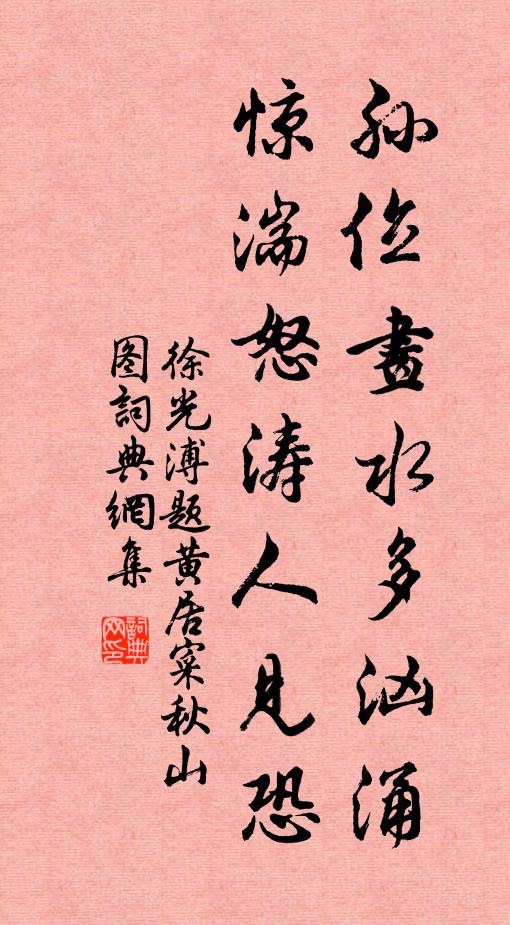 孙位畫水多汹涌
惊湍怒涛人見恐
徐光溥题黄居寀秋山
图詞典網集
詞典网印